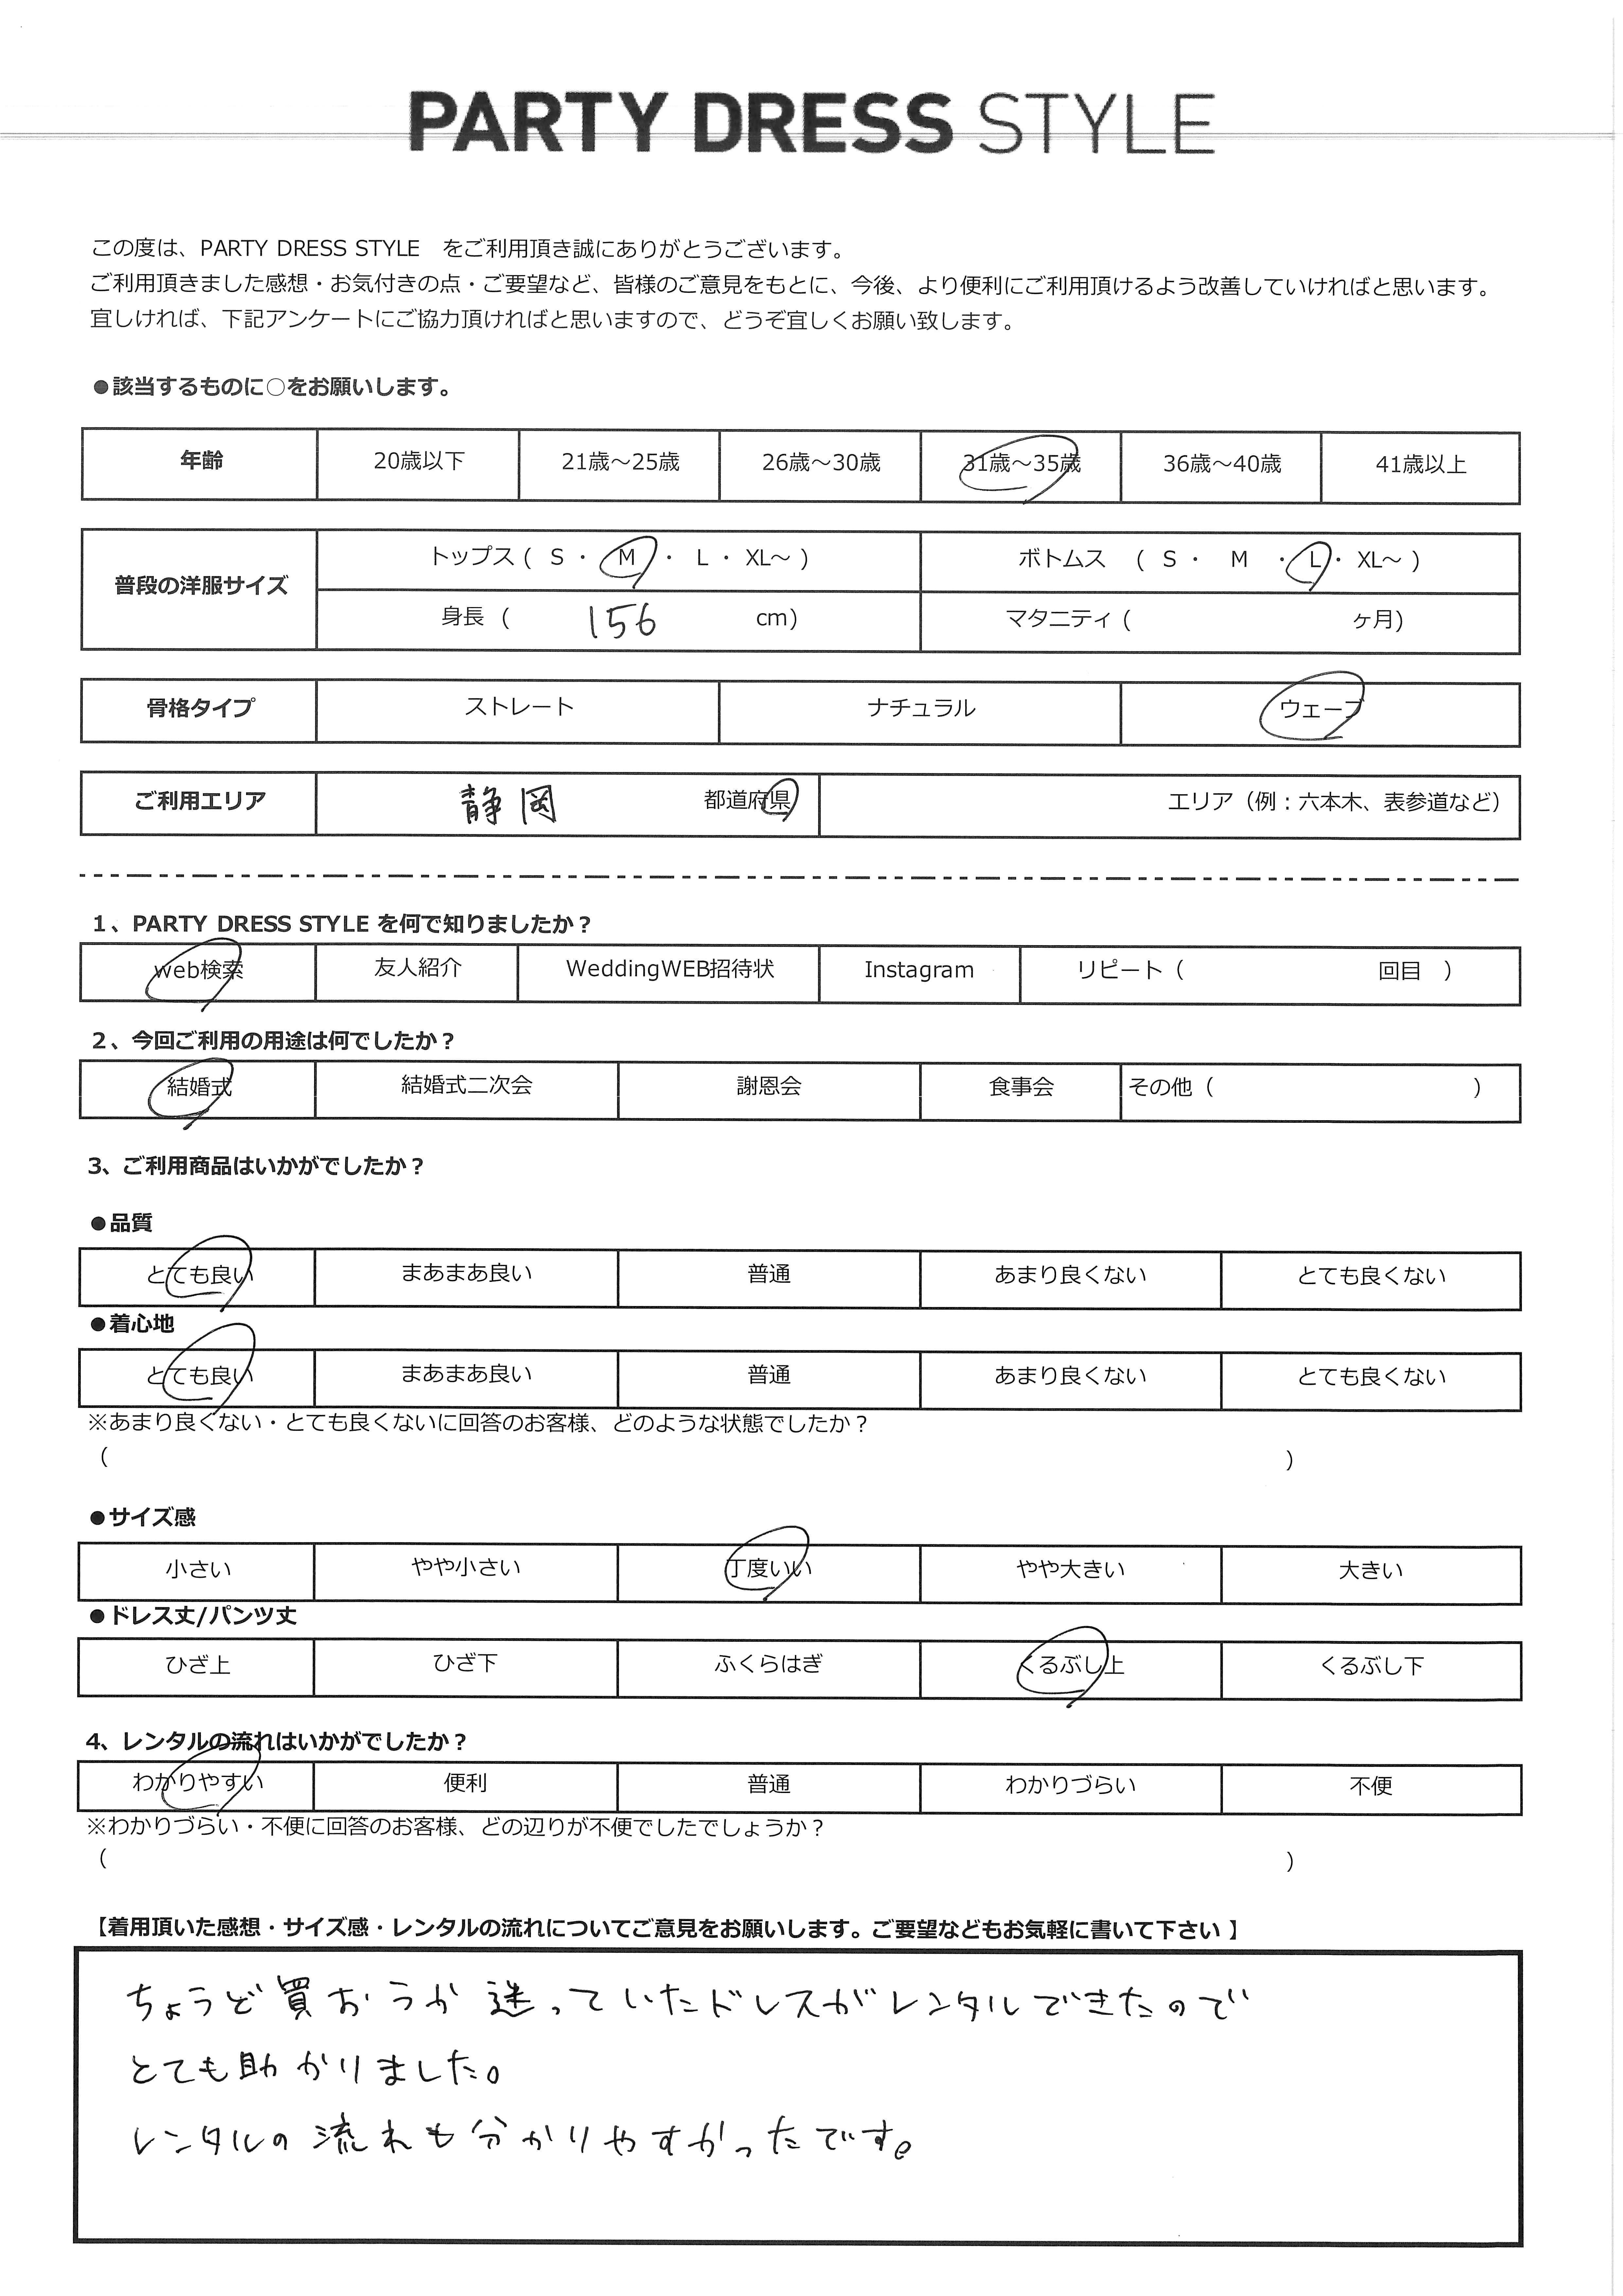 PARTY DRESS STYLE
この度は、PARTY DRESS STYLE　をご利用頂き誠にありがとうございます。
ご利用頂きました感想・お気付きの点・ご要望など、皆様のご意見をもとに、今後、より便利にご利用頂けるよう改善していければと思います。
宜しければ、下記アンケートにご協力頂ければと思いますので、どうぞ宜しくお願い致します。
●該当するものに○をお願いします。
年齢 20歳以下 21歳～25歳 26歳～30歳 31歳～35歳 36歳～40歳 41歳以上
普段の洋服サイズ トップス ( S ・ M ・ L ・ XL～ ) ボトムス ( S ・ M ・ L ・ XL～ )
身長 ( 156 cm) マタニティ ( ヶ月)
骨格タイプ ストレート ナチュラル ウェーブ
ご利用エリア 静岡 都道府県 エリア（例：六本木、表参道など）
1、PARTY DRESS STYLE を何で知りましたか？
web検索 友人紹介 WeddingWEB招待状 Instagram リピート（ 回目 ）
2、今回ご利用の用途は何でしたか？
結婚式 結婚式二次会 謝恩会 食事会 その他（ ）
3、ご利用商品はいかがでしたか？
●品質
とても良い まあまあ良い 普通 あまり良くない とても良くない
●着心地
とても良い まあまあ良い 普通 あまり良くない とても良くない
※あまり良くない・とても良くないに回答のお客様、どのような状態でしたか？
（ ）
●サイズ感
小さい やや小さい 丁度いい やや大きい 大きい
●ドレス丈/パンツ丈
ひざ上 ひざ下 ふくらはぎ くるぶし上 くるぶし下
4、レンタルの流れはいかがでしたか？
わかりやすい 便利 普通 わかりづらい 不便
※わかりづらい・不便に回答のお客様、どの辺りが不便でしたでしょうか？
（ ）
【着用頂いた感想・サイズ感・レンタルの流れについてご意見をお願いします。ご要望などもお気軽に書いて下さい 】
ちょうど買おうか迷っていたドレスがレンタルできたので
とても助かりました。
レンタルの流れも分かりやすかったです。